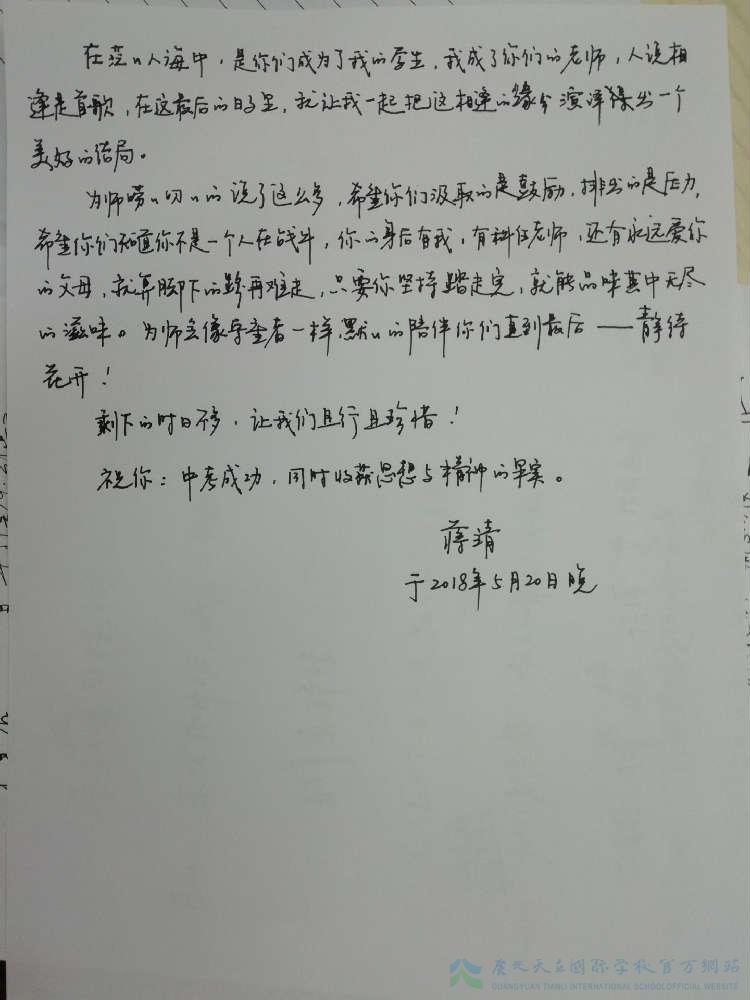 在茫〃人海中，是你们成为了我的学生，我成了你们的老师，人说相
逢是首歌，在这最后的日子里，就让我一起把这相逢的缘分演泽绎出一个
美好的结局。
为师唠〃叨〃的说了这么多，希望你们汲取的是鼓励，排出的是压力，
希望你们知道你不是一个人在战斗，你的身后有我，有科任老师，还有永远爱你
的父母，就算脚下的路再难走，只要你坚持踏走完，就能品味其中无尽
的滋味。为师会像守望者一样，默〃的陪伴你们直到最后——静待
花开！
剩下的时日不多，让我们且行且珍惜！
祝你：中考成功，同时收获思想与精神的果实。
蒋靖
于2018年5月20日晚
广元天立国际学校官方網站
GUANGYUAN TIANLI INTERNATIONAL SCHOOL OFFICIAL WEBSITE